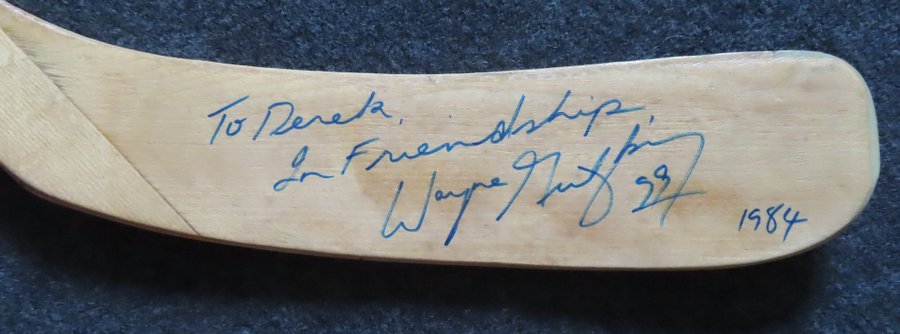 To Derek,
In Friendship,
Wayne Gretzky 99
1984